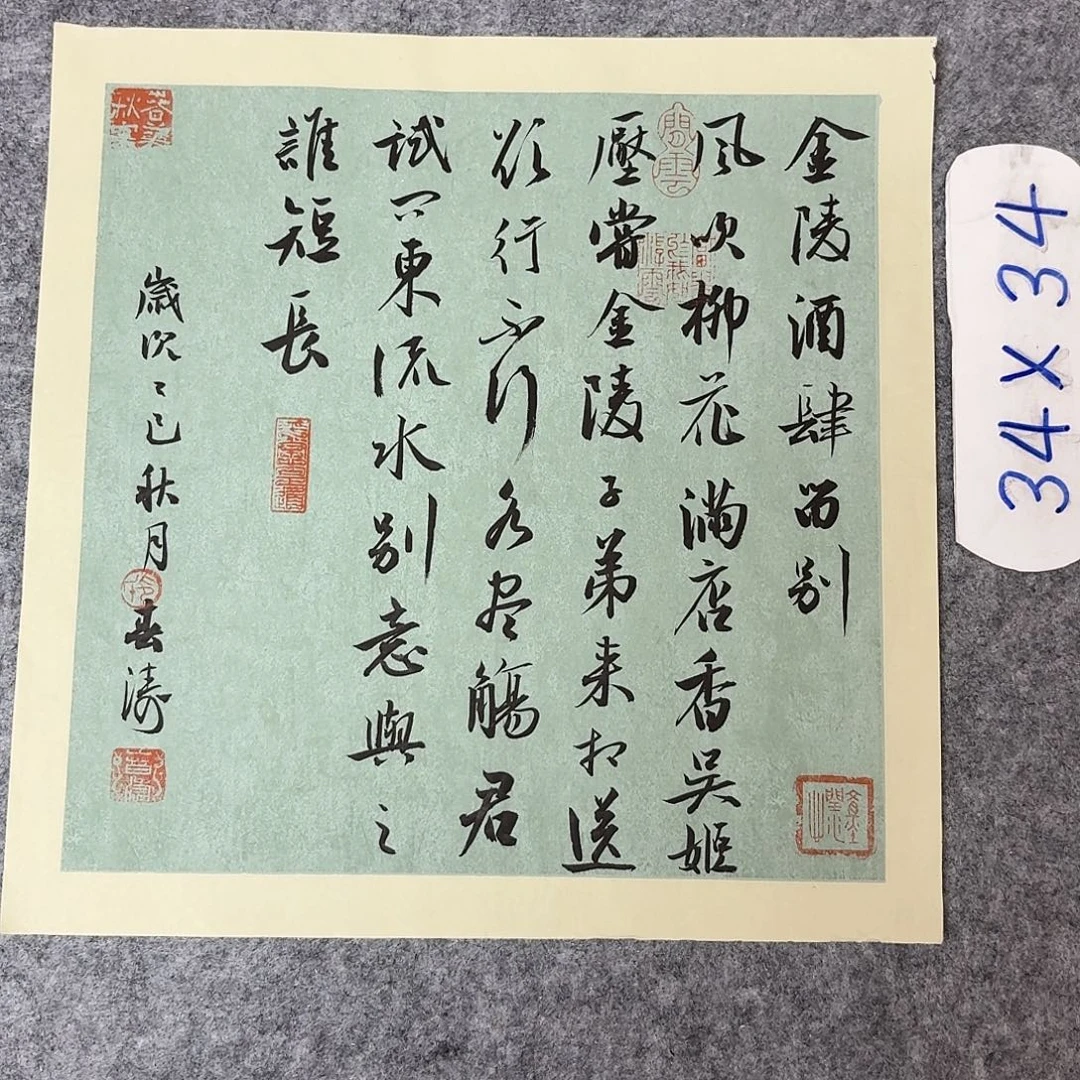 金陵酒肆留别
風吹柳花滿店香吴姬
壓嘗金陵子弟来相送
欲行不行各尽觴君
試问東流水别意與之
誰短長
歲次乙巳秋月春濤
34X34